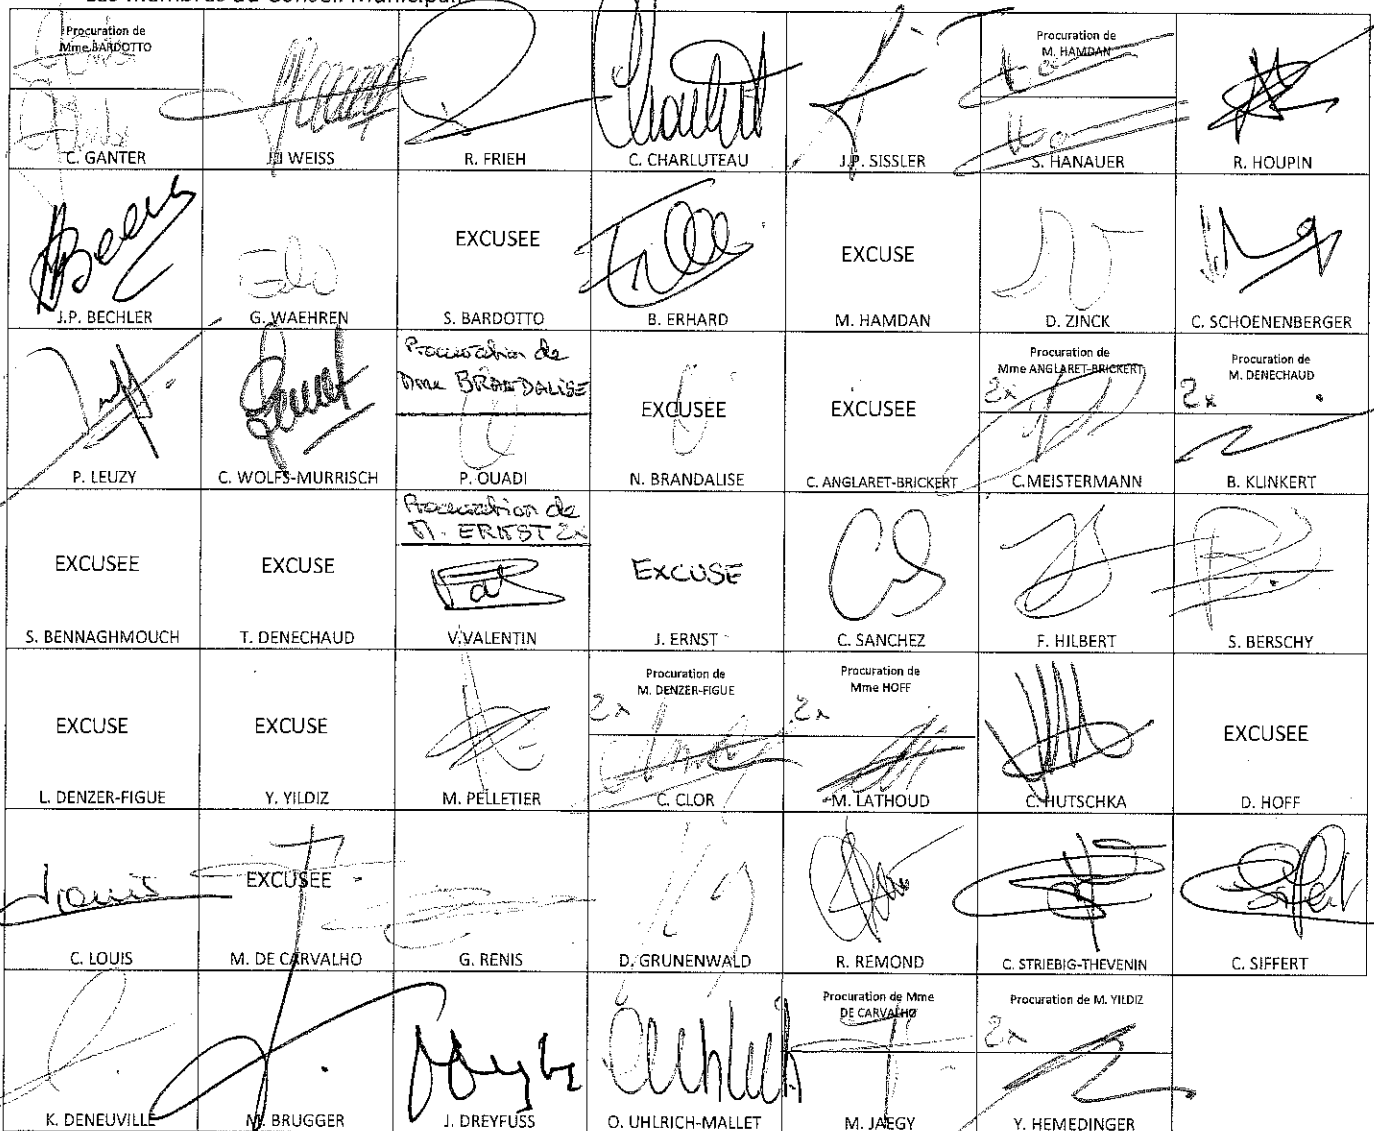 Les Membres du Conseil Municipal
Procuration de
Mme BARDOTTO
C. GANTER
WEISS
R. FRIEH
C. CHARLUTEAU
J.P. SISSLER
Procuration de
M. HAMDAN
S. HANAUER
R. HOUPIN
J.P. BECHLER
G. WAEHREN
EXCUSEE
S. BARDOTTO
B. ERHARD
EXCUSE
M. HAMDAN
D. ZINCK
C. SCHOENENBERGER
P. LEUZY
C. WOLFS-MURRISCH
Procuration de
Mme BRANDALISE
P. OUADI
EXCUSEE
N. BRANDALISE
EXCUSEE
C. ANGLARET-BRICKERT
Procuration de
Mme ANGLARET-BRICKERT
2x
C.MEISTERMANN
Procuration de
M. DENECHAUD
2x
B. KLINKERT
EXCUSEE
S. BENNAGHMOUCH
EXCUSE
T. DENECHAUD
Procuration de
M. ERNST 2x
V.VALENTIN
EXCUSE
J. ERNST
C. SANCHEZ
F. HILBERT
S. BERSCHY
EXCUSE
L. DENZER-FIGUE
EXCUSE
Y. YILDIZ
M. PELLETIER
Procuration de
M. DENZER-FIGUE
2x
C. CLOR
Procuration de
Mme HOFF
2x
M. LATHOUD
C. HUTSCHKA
EXCUSEE
D. HOFF
C. LOUIS
EXCUSEE
M. DE CARVALHO
G. RENIS
D. GRUNENWALD
R. REMOND
C. STRIEBIG-THEVENIN
C. SIFFERT
K. DENEUVILLE
M. BRUGGER
J. DREYFUSS
O. UHLRICH-MALLET
Procuration de Mme
DE CARVALHO
M. JAEGY
Procuration de M. YILDIZ
2x
Y. HEMEDINGER